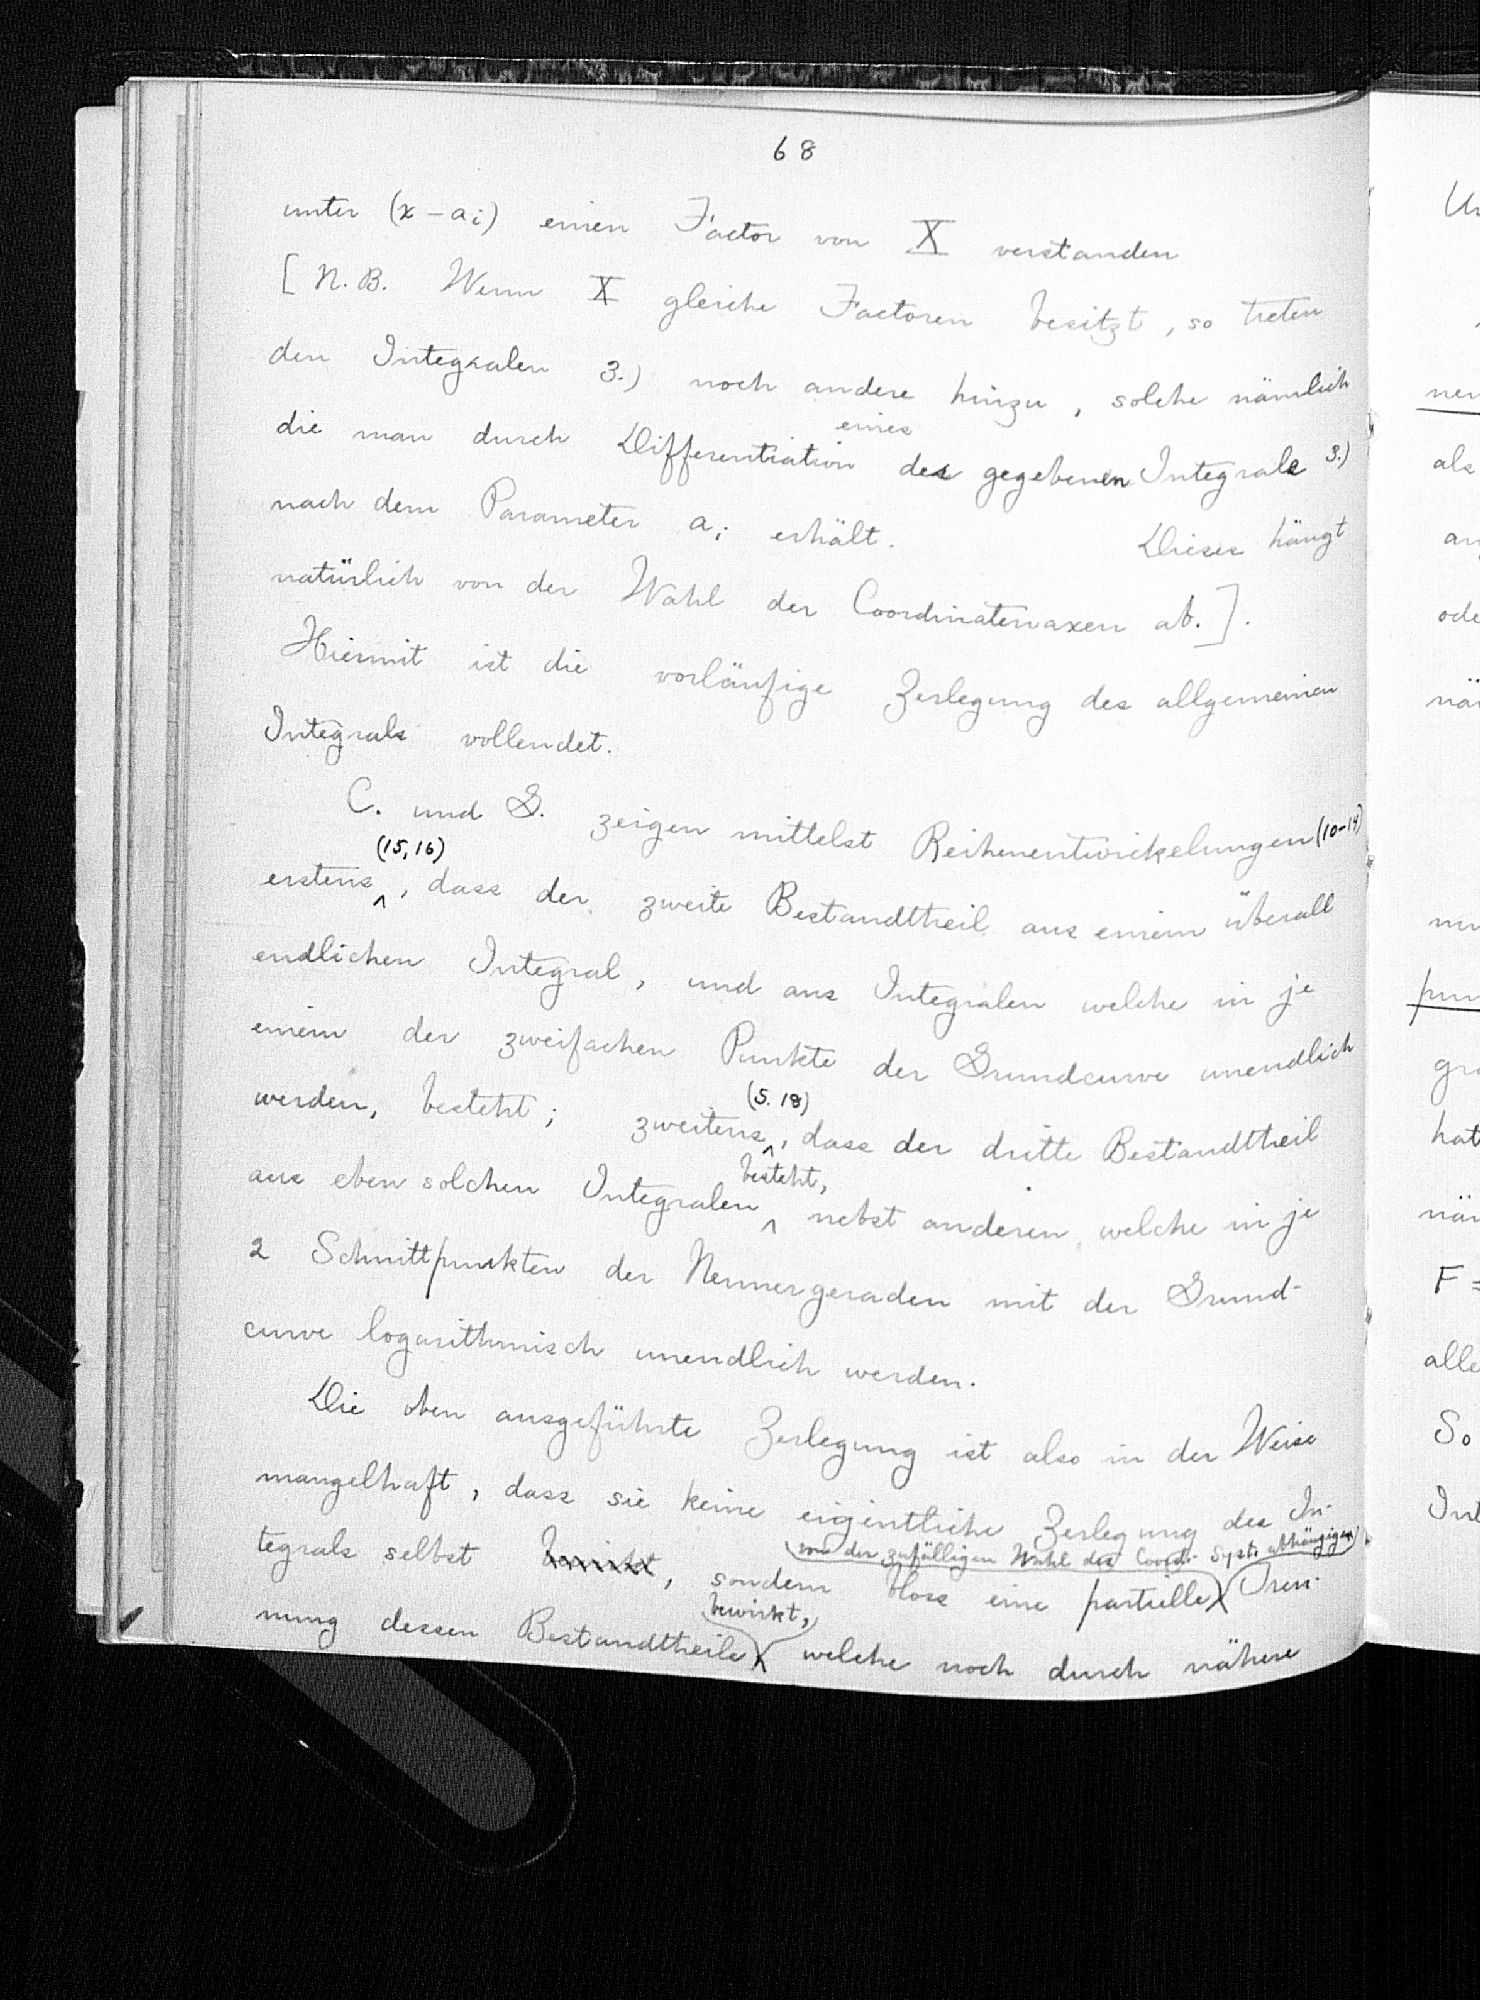 68
unter (x – aᵢ) einen Factor von X verstanden
[N.B. Wenn X gleiche Factoren besitzt, so treten
den Integralen 3.) noch andere hinzu, solche nämlich
eines
die man durch Differentiation des gegebenen Integrals 3.)
nach dem Parameter aᵢ erhält. Dieses hängt
natürlich von der Wahl der Coordinatenaxen ab.].
Hiermit ist die vorläufige Zerlegung des allgemeinen
Integrals vollendet.
C. und G. zeigen mittelst Reihenentwickelungen (10-14)
(15, 16)
erstens, dass der zweite Bestandtheil aus einem überall
endlichen Integral, und aus Integralen welche in je
einem der zweifachen Punkte der Grundcurve unendlich
(S. 18)
werden, besteht; zweitens, dass der dritte Bestandtheil
besteht,
aus eben solchen Integralen nebst anderen welche in je
2 Schnittpunkten der Nennergeraden mit der Grund-
curve logarithmisch unendlich werden.
Die oben ausgeführte Zerlegung ist also in der Weise
mangelhaft, dass sie keine eigentliche Zerlegung des In-
von der zufälligen Wahl des Coord. Syst. abhängigen
tegrals selbst bewirkt, sondern bloss eine partielle Tren-
bewirkt,
nung dessen Bestandtheile welche noch durch nähere
ner
als
an
ode
när
pun
gra
hat
när
F =
alle
So
Int